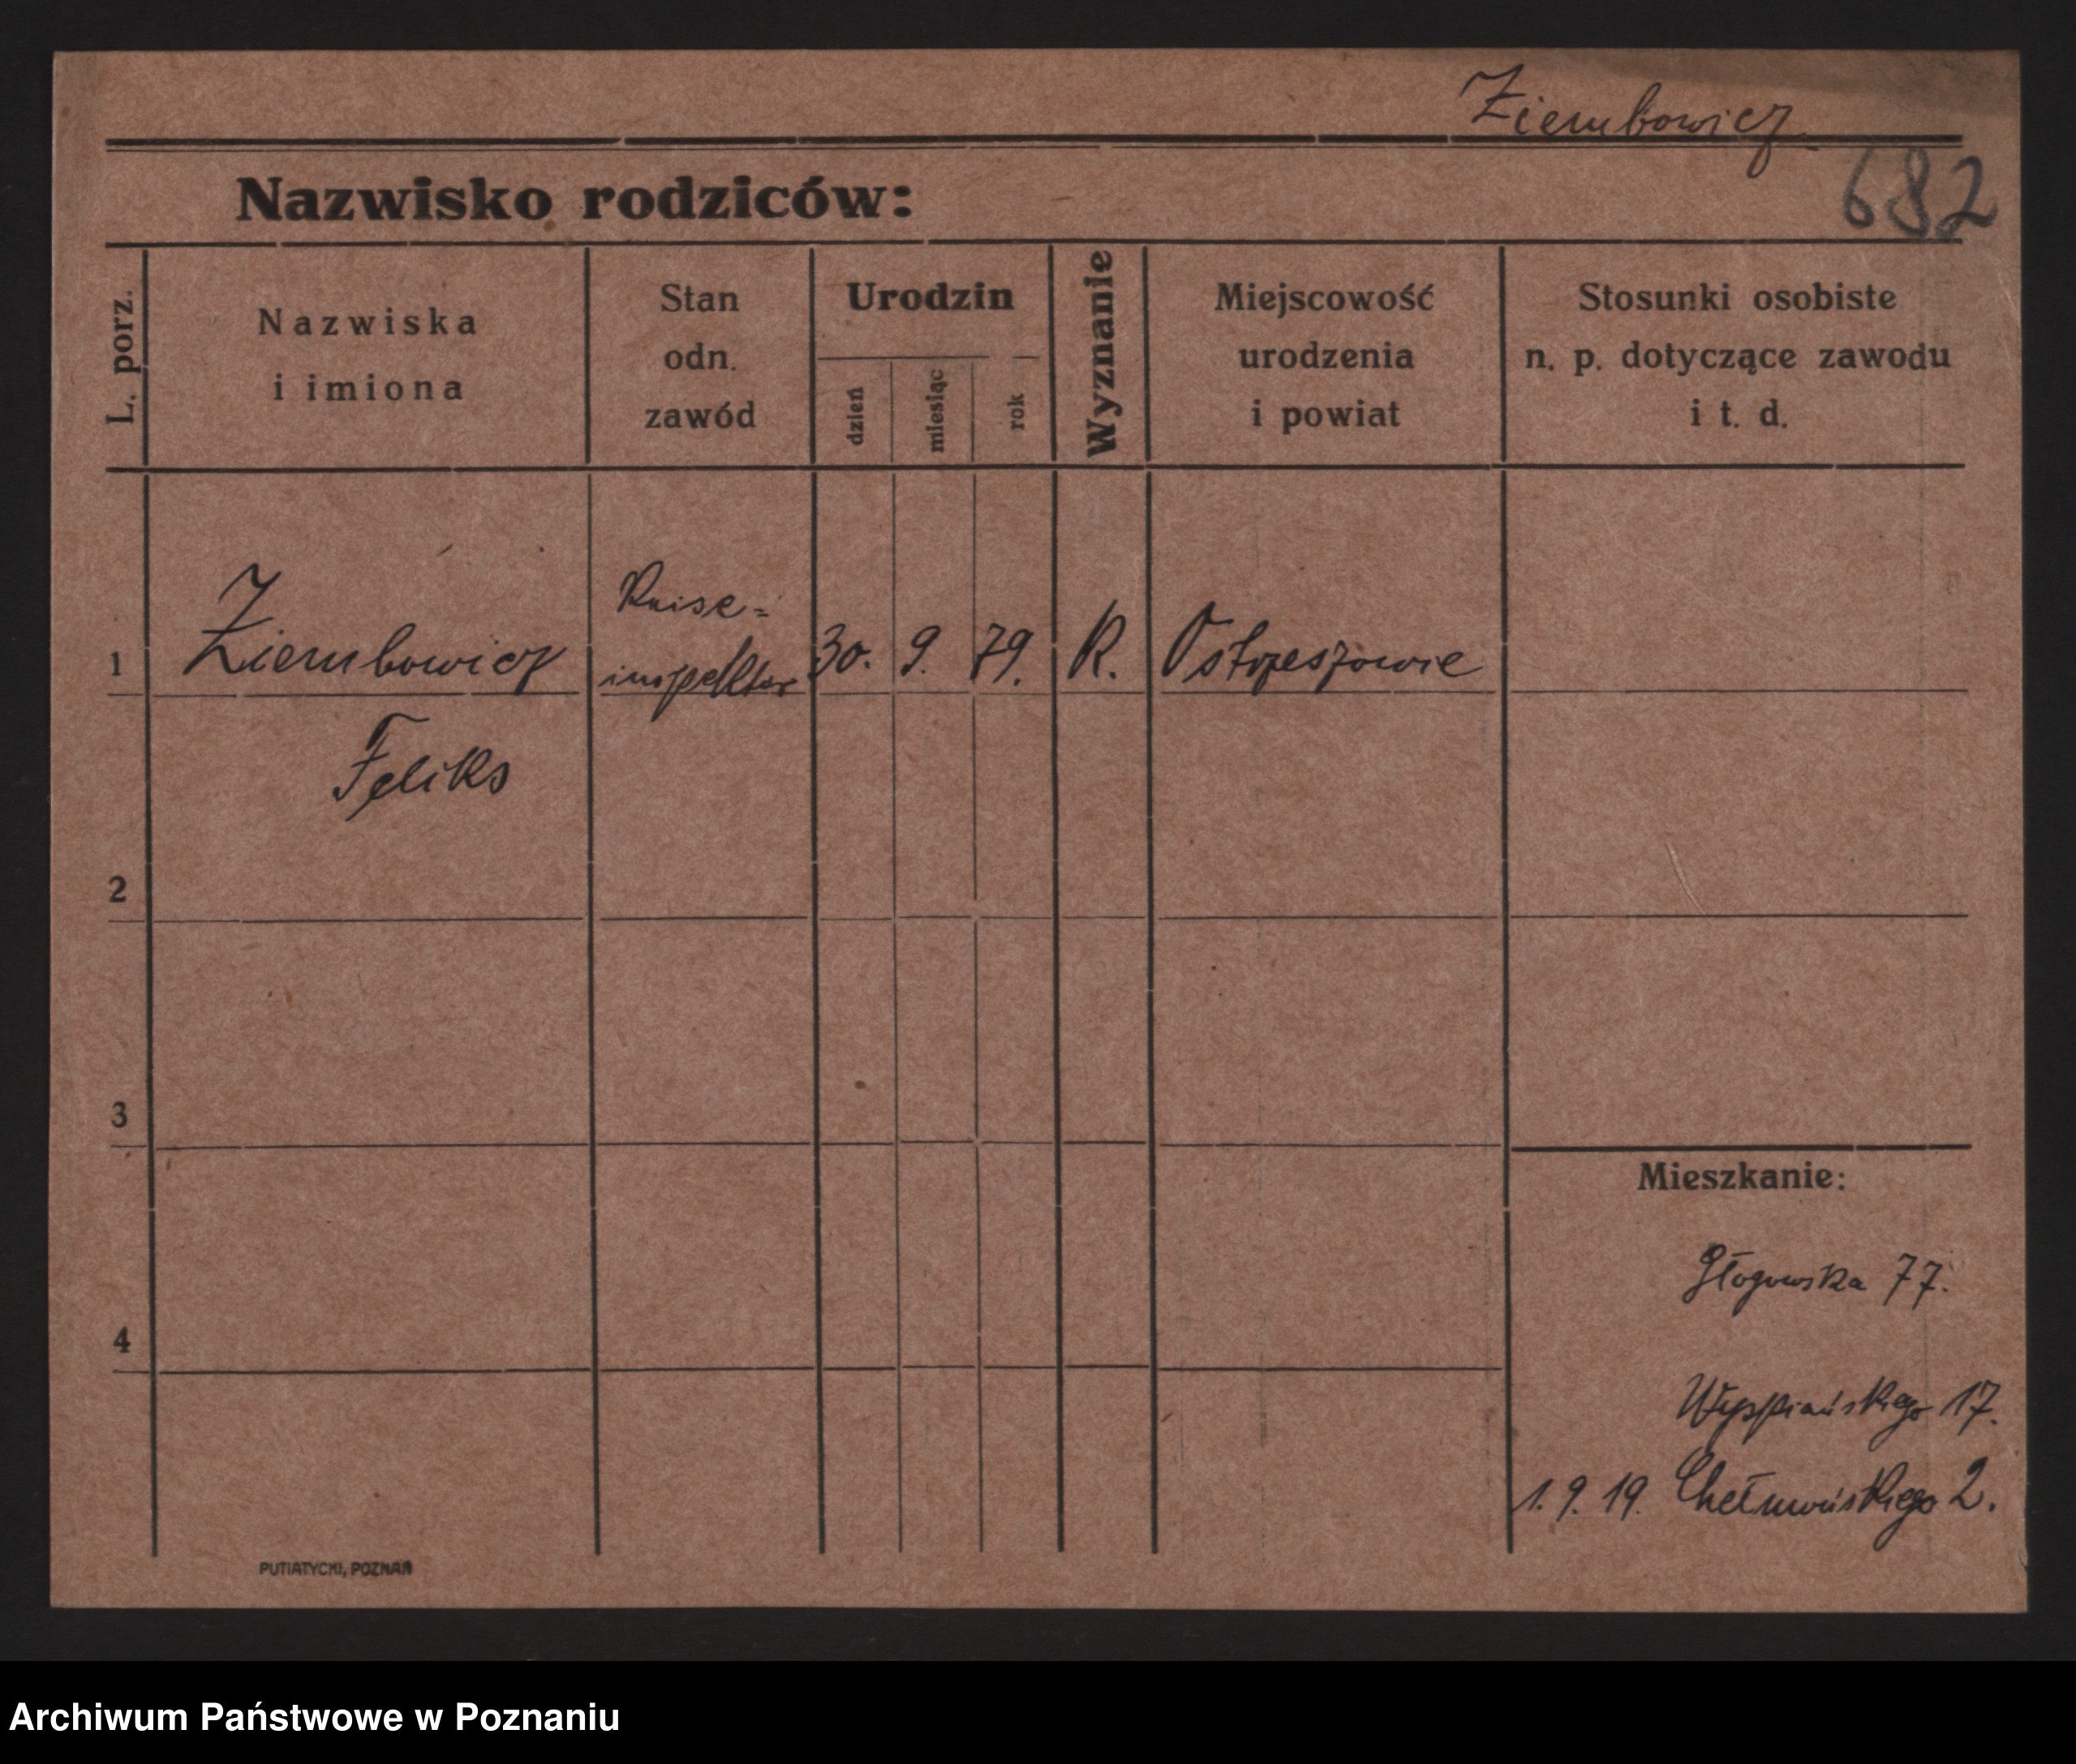 Ziembowicz
682
Nazwisko rodziców:
L. porz.
Nazwiska
i imiona
Stan
odn.
zawód
Urodzin
dzień
miesiąc
rok
Wyznanie
Miejscowość
urodzenia
i powiat
Stosunki osobiste
n. p. dotyczące zawodu
i t. d.
1 Ziembowicz
Feliks
Reise=
inspektor
30. 9. 79. R. Ostrzeszowie
2
3
4
Mieszkanie:
Głogowska 77.
Wyspiańskiego 17.
1. 9. 19. Chełmońskiego 2.
PUTIATYCKI, POZNAŃ
Archiwum Państwowe w Poznaniu